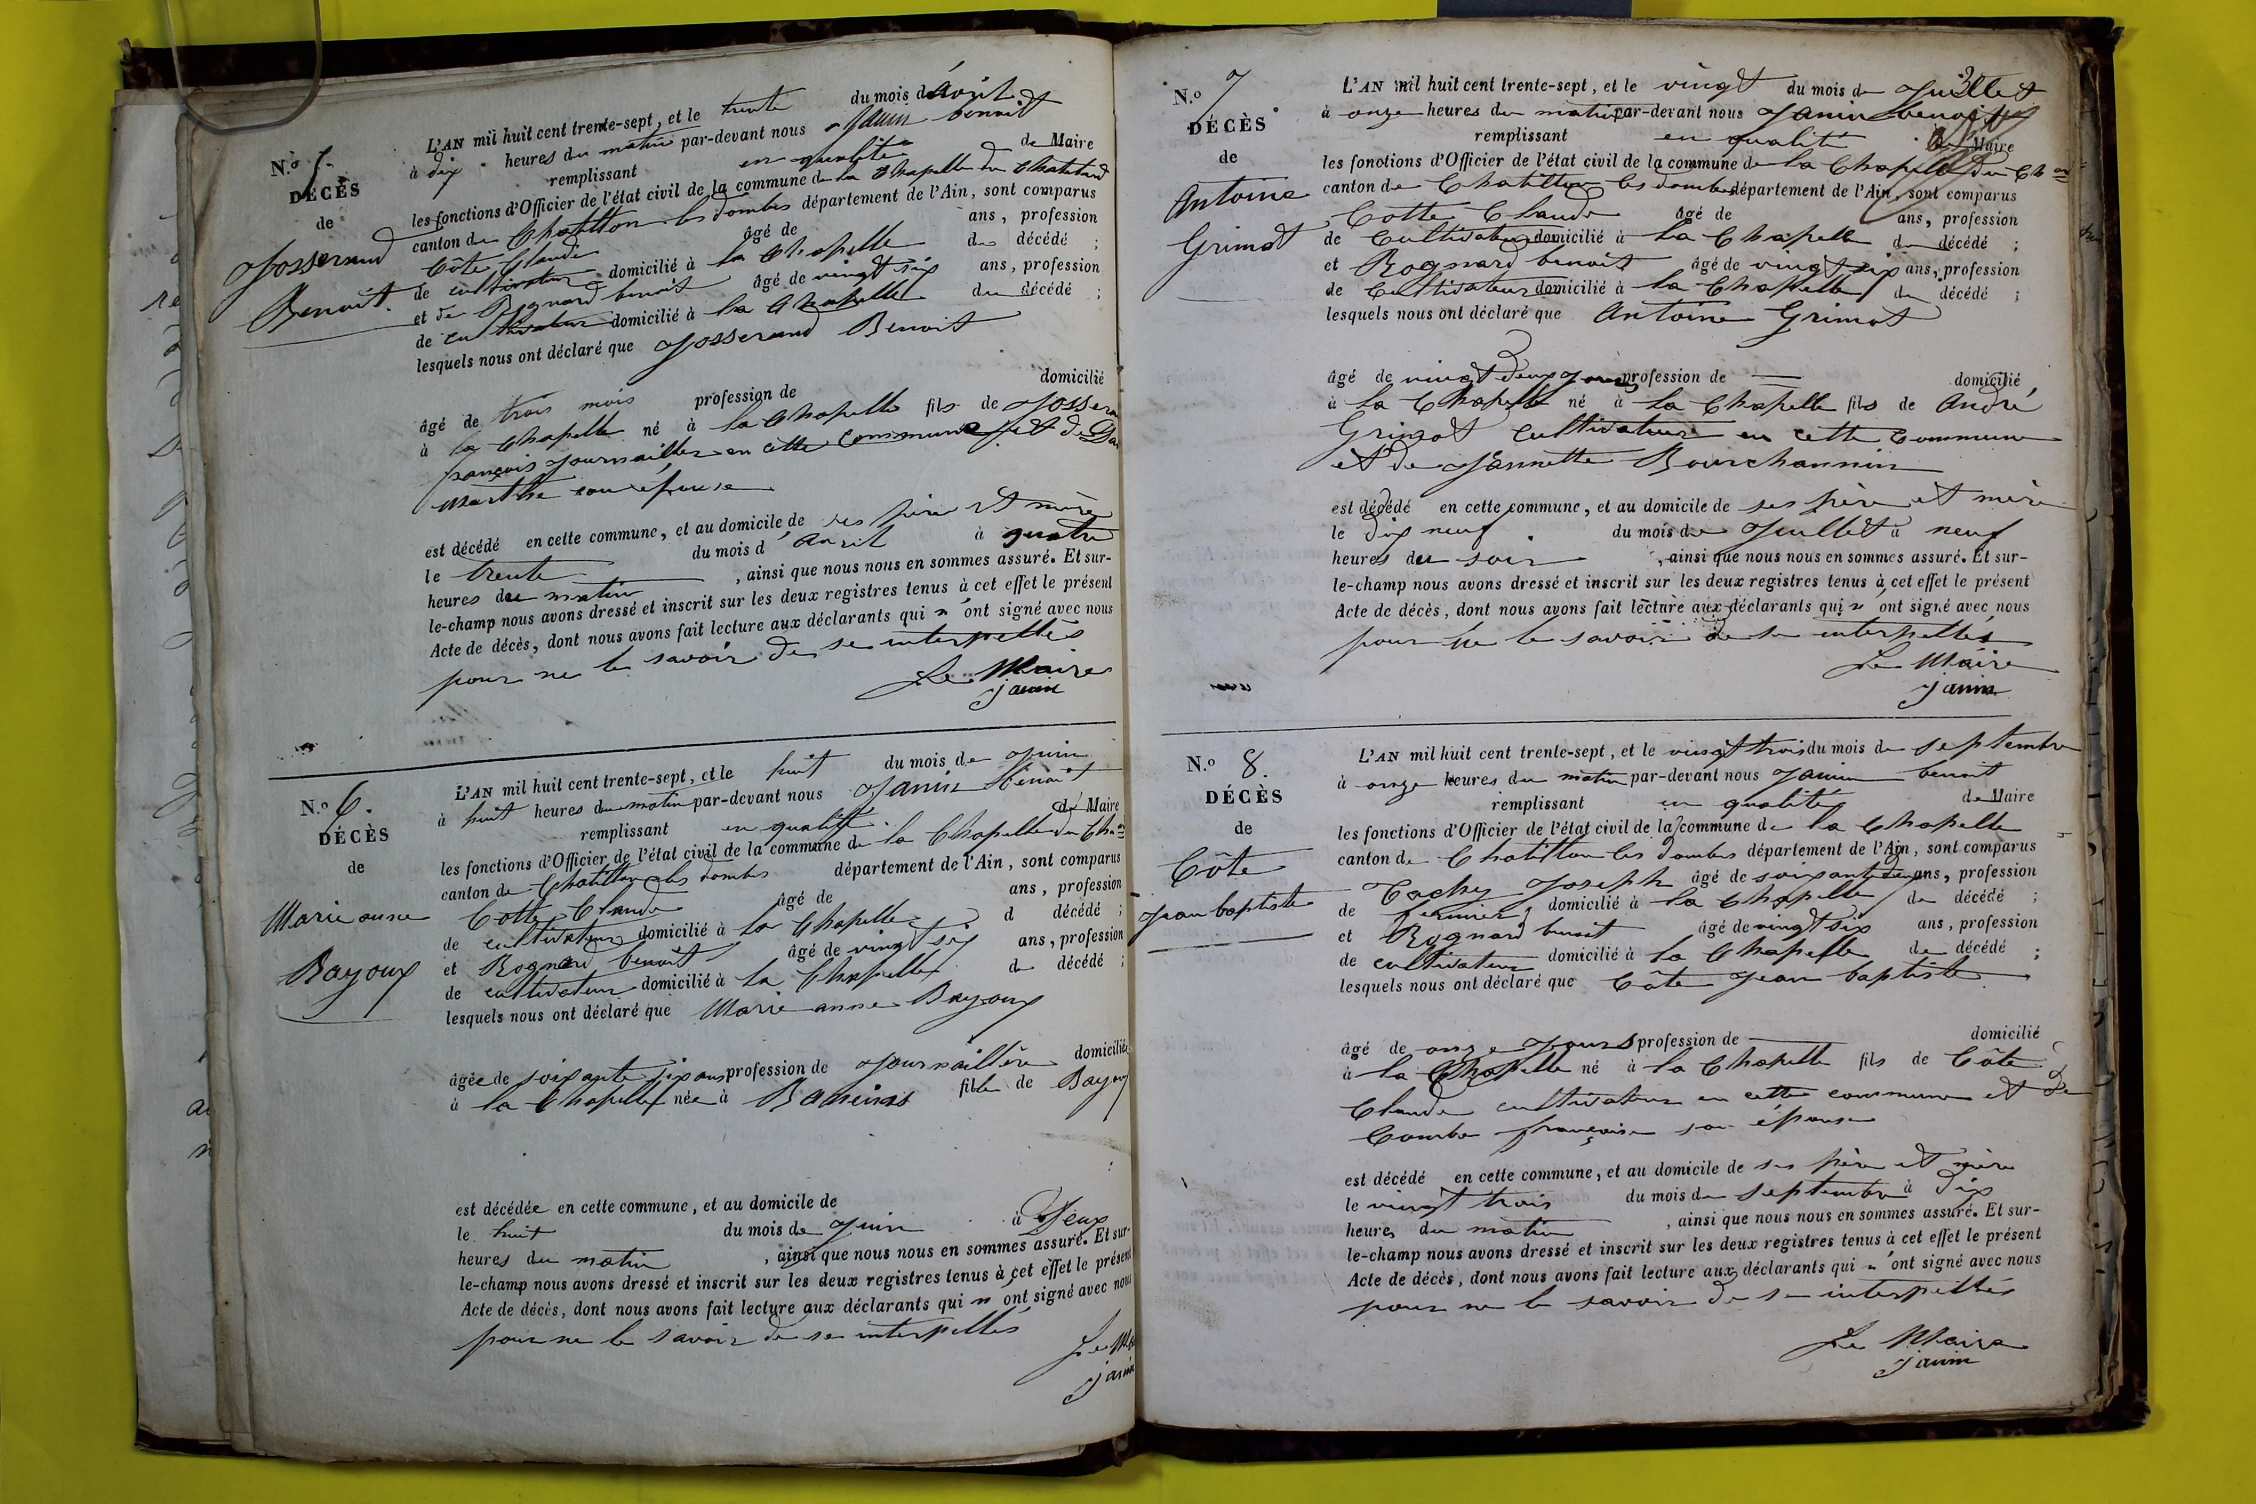 N.º 5.
DÉCÈS
de
Josserand
Benoit.
L'AN mil huit cent trente-sept, et le trente du mois d'avril
à dix heures du matin par-devant nous Janin benoit
remplissant en qualité de Maire
les fonctions d'Officier de l'état civil de la commune de la Chapelle du Chatelard
canton de Chatillon les dombes département de l'Ain, sont comparus
Côte Claude âgé de ans, profession
de cultivateur domicilié à la Chapelle du décédé ;
et de Rognard benoit âgé de vingt six ans, profession
de cultivateur domicilié à la Chapelle du décédé ;
lesquels nous ont déclaré que Josserand Benoit
âgé de trois mois profession de domicilié
à la Chapelle né à la Chapelle fils de Josseran
françois Journaillier en cette commune et de
Marthe son épouse
est décédé en cette commune, et au domicile de ses père et mère
le trente du mois d'Avril à quatre
heures du matin , ainsi que nous nous en sommes assuré. Et sur-
le-champ nous avons dressé et inscrit sur les deux registres tenus à cet effet le présent
Acte de décès, dont nous avons fait lecture aux déclarants qui n'ont signé avec nous
pour ne le savoir de se interpellés
Le Maire
janin
N.º 6.
DÉCÈS
de
Marie anne
Bayoux
L'AN mil huit cent trente-sept, et le huit du mois de Juin
à huit heures du matin par-devant nous Janin Benoit
remplissant en qualité de Maire
les fonctions d'Officier de l'état civil de la commune de la Chapelle du Cha
canton de Chatillon les dombes département de l'Ain, sont comparus
Cotte Claude âgé de ans, profession
de cultivateur domicilié à la Chapelle d décédé ;
et Rognard benoit âgé de vingt six ans, profession
de cultivateur domicilié à la Chapelle de décédé ;
lesquels nous ont déclaré que Marie anne Bayoux
âgée de soixante six ans profession de Journaillère domiciliée
à la Chapelle née à fille de Bayoux
est décédée en cette commune, et au domicile de
le huit du mois de Juin à Deux
heures du matin , ainsi que nous nous en sommes assuré. Et sur-
le-champ nous avons dressé et inscrit sur les deux registres tenus à cet effet le présent
Acte de décès, dont nous avons fait lecture aux déclarants qui n'ont signé avec nous
pour ne le savoir de se interpellés
Le Mai
janin
3
N.º 7
DÉCÈS
de
Antoine
Grimot
L'AN mil huit cent trente-sept, et le vingt du mois de Juillet
à onze heures du matin par-devant nous Janin benoit
remplissant en qualité de Maire
les fonctions d'Officier de l'état civil de la commune de la Chapelle du Ch
canton de Chatillon les dombes département de l'Ain, sont comparus
Cotte Claude âgé de ans, profession
de Cultivateur domicilié à la Chapelle du décédé ;
et Rognard benoit âgé de vingt six ans, profession
de Cultivateur domicilié à la Chapelle du décédé ;
lesquels nous ont déclaré que Antoine Grimot
âgé de vingt deux jours profession de — domicilié
à la Chapelle né à la Chapelle fils de André
Grimot Cultivateur en cette Commune
et de Jannette Bourchannin
est décédé en cette commune, et au domicile de ses père et mère
le dix neuf du mois de Juillet à neuf
heures du soir , ainsi que nous nous en sommes assuré. Et sur-
le-champ nous avons dressé et inscrit sur les deux registres tenus à cet effet le présent
Acte de décès, dont nous avons fait lecture aux déclarants qui n'ont signé avec nous
pour ne le savoir de se interpellés
Le Maire
janin
N.º 8.
DÉCÈS
de
Côte
Jean baptiste
L'AN mil huit cent trente-sept, et le vingt trois du mois de septembre
à onze heures du matin par-devant nous Janin benoit
remplissant en qualité de Maire
les fonctions d'Officier de l'état civil de la commune de la Chapelle
canton de Chatillon les dombes département de l'Ain, sont comparus
Joseph âgé de ans, profession
de fermier domicilié à la Chapelle du décédé ;
et Rognard benoit âgé de vingt six ans, profession
de cultivateur domicilié à la Chapelle de décédé ;
lesquels nous ont déclaré que Côte Jean baptiste
âgé de onze Jours profession de — domicilié
à la Chapelle né à la Chapelle fils de Côte
Claude cultivateur en cette commune et De
Combe françoise son épouse
est décédé en cette commune, et au domicile de ses père et mère
le vingt trois du mois de septembre à dix
heures du matin , ainsi que nous nous en sommes assuré. Et sur-
le-champ nous avons dressé et inscrit sur les deux registres tenus à cet effet le présent
Acte de décès, dont nous avons fait lecture aux déclarants qui n'ont signé avec nous
pour ne le savoir de se interpellés
Le Maire
janin